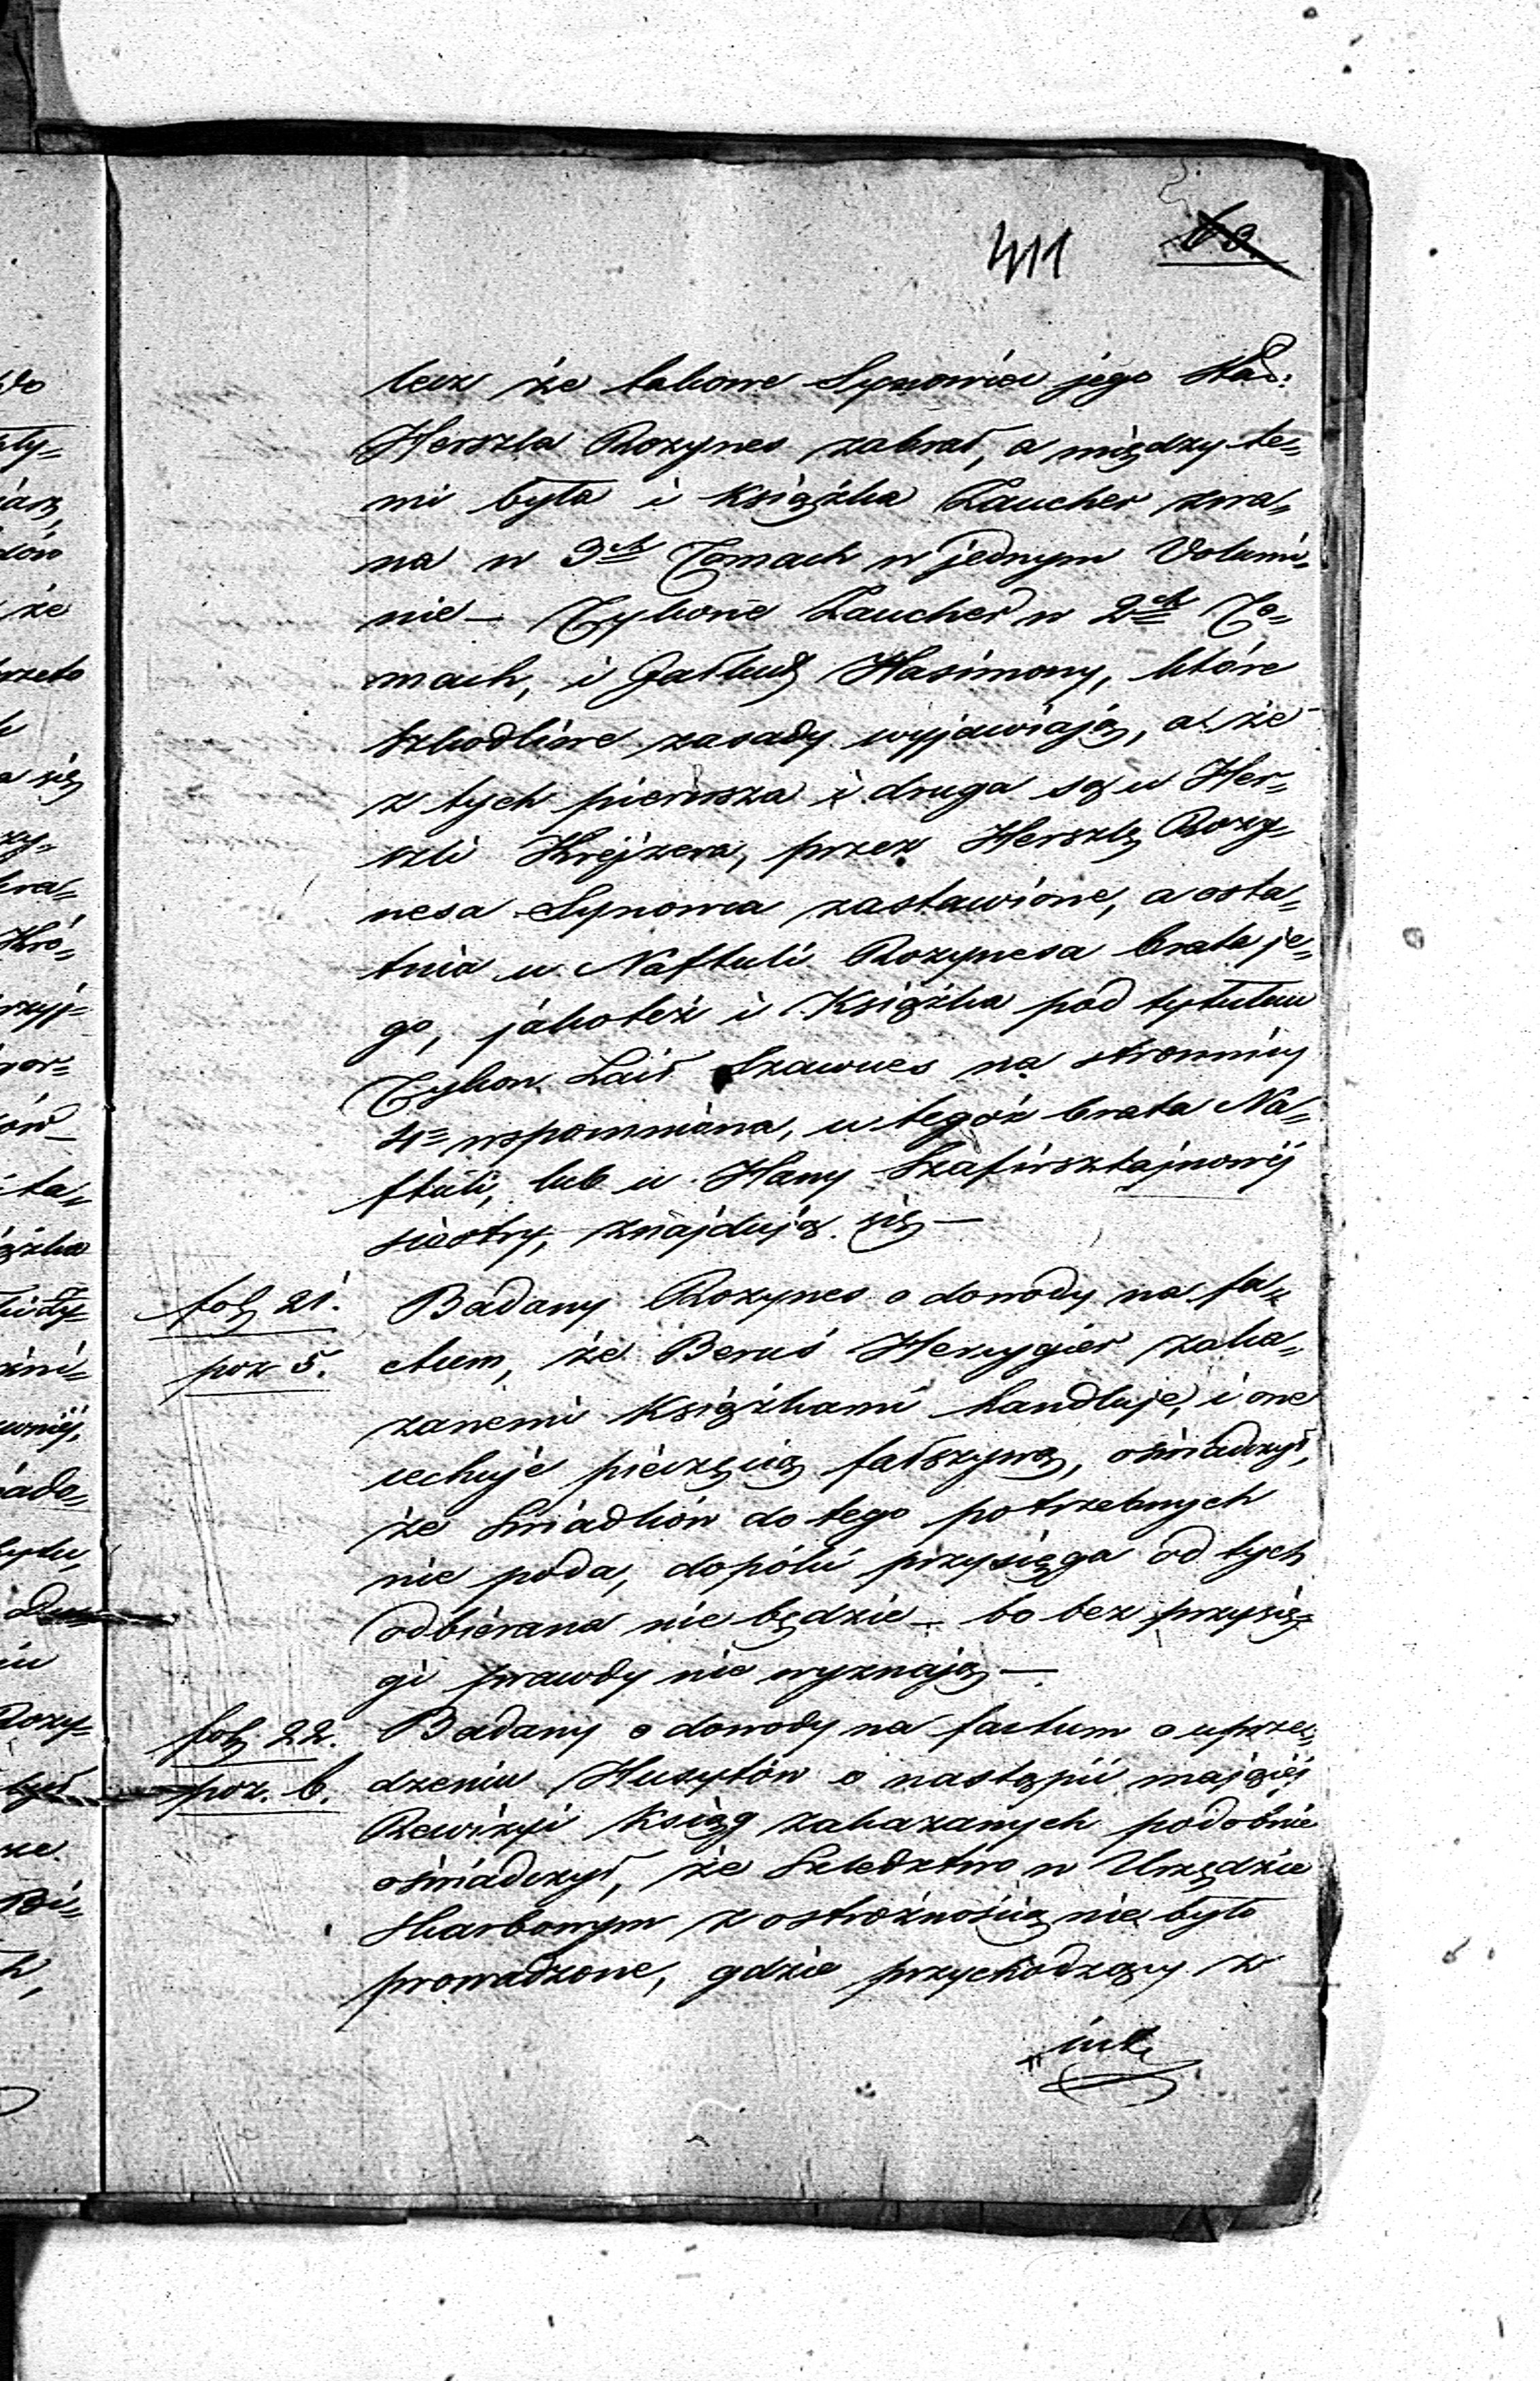 411 60.
lecz że takowe Synowiec jego
Herszla Rozynes zabrał, a między te=
mi była i Książka Zaucher zwa=
na w 3ch Tomach w jednym Volumi=
nie — Tykone Zaucher w 2ch To=
mach, i Jalkut Hasimony, które
szkodliwe zasady wyjawiają, a że
z tych pierwsza i druga są u Her=
szli Krejzera, przez Herszlę Rozy=
nesa Synowca zastawione, a osta=
tnia u Naftuli Rozynesa brata je=
go, jakoteż i Książka pod tytułem
Tykon Lail Szawues na stronnicy
4= wspomniona, u tegoż brata Na=
ftuli, lub u Hany Szafirsztajnowéj
siostry, znajdują się —
fol 21.
poz 5.
Badany Rozynes o dowody na fa=
ctum, że Beruś Hercygier zaka=
zanemi Książkami handluje, i one
cechuje pieczęcią fałszywą, oświadczył,
że Świadków do tego potrzebnych
nie poda, dopóki przysięga od tych
odbierana nie będzie — bo bez przysię=
gi prawdy nie wyznają —
fol 22.
poz. 6.
Badany o dowody na factum o uprze=
dzeniu Husytów o nastąpić mającéj
Rewizyi Ksiąg zakazanych podobnie
oświadczył, że Szledztwo w Urzędzie
Skarbowym z ostrożnością nie było
prowadzone, gdzie przychodzący z